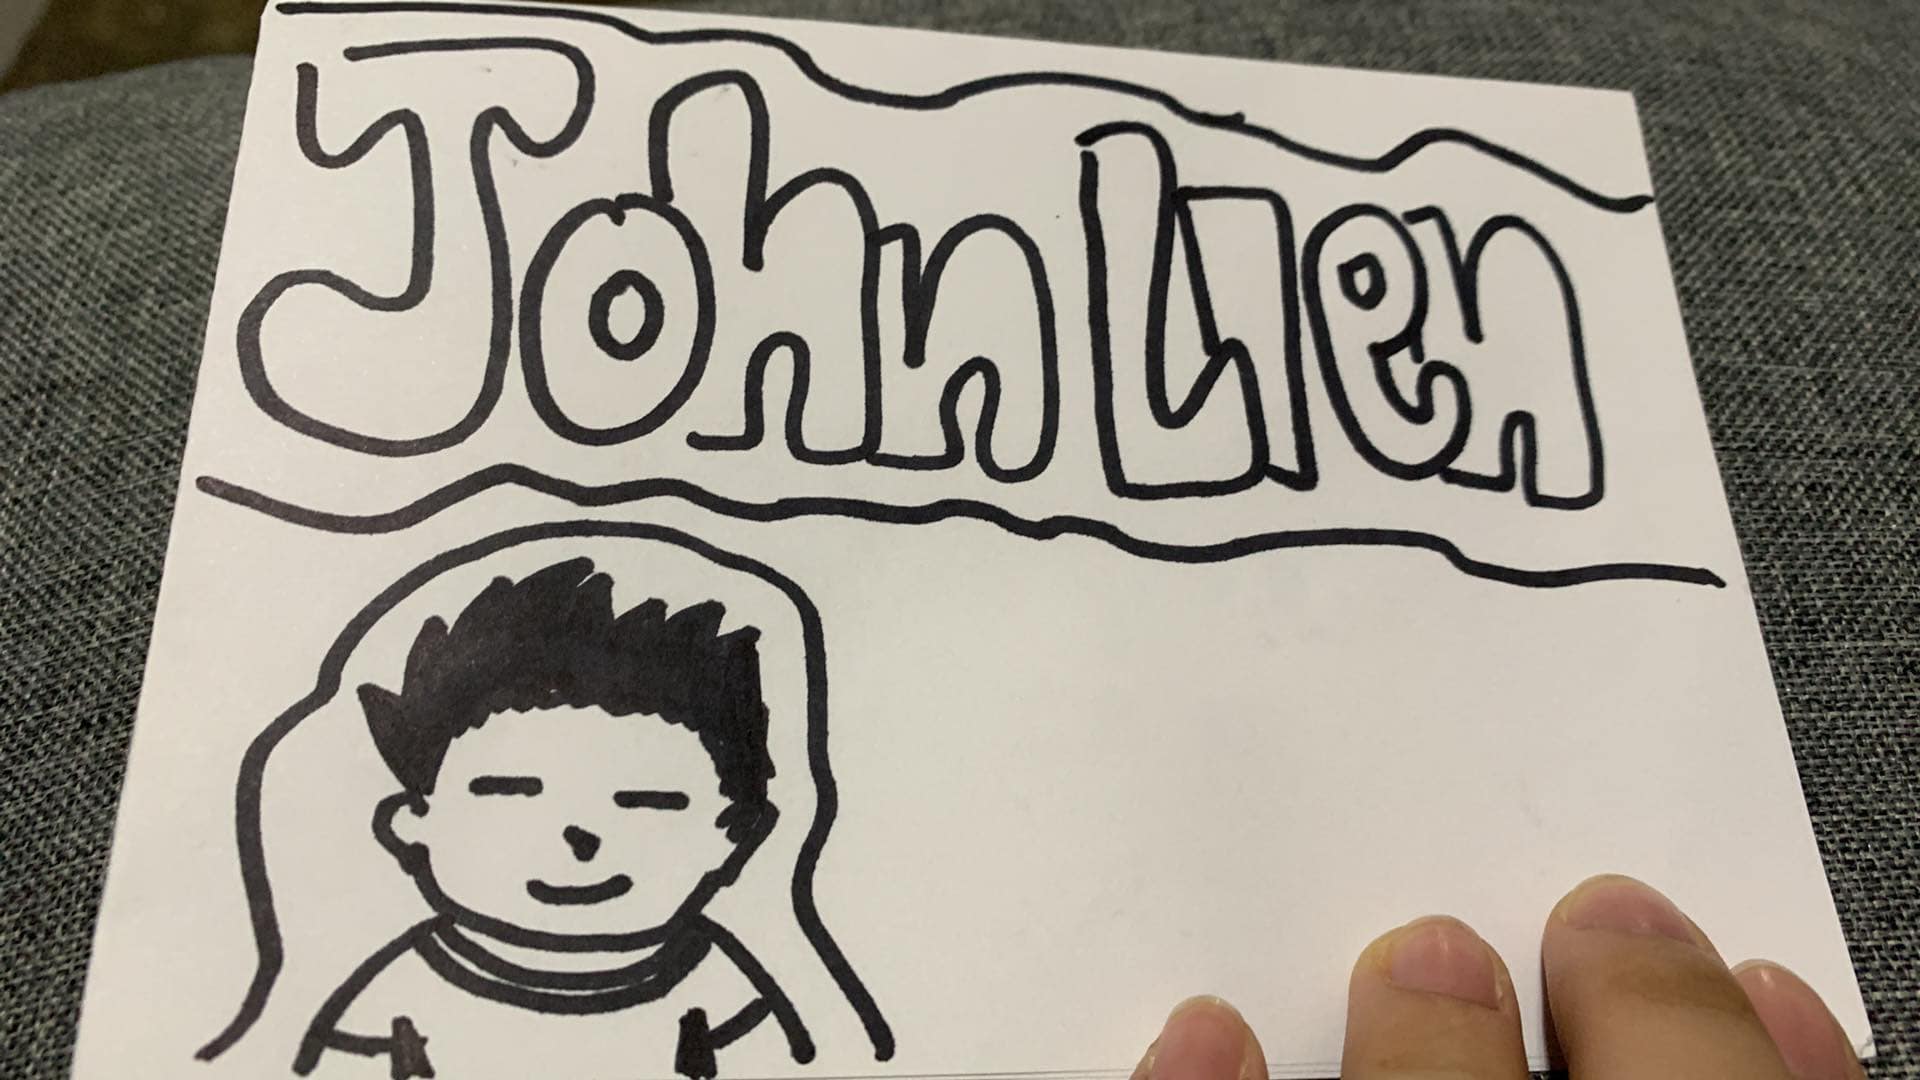 John Lien